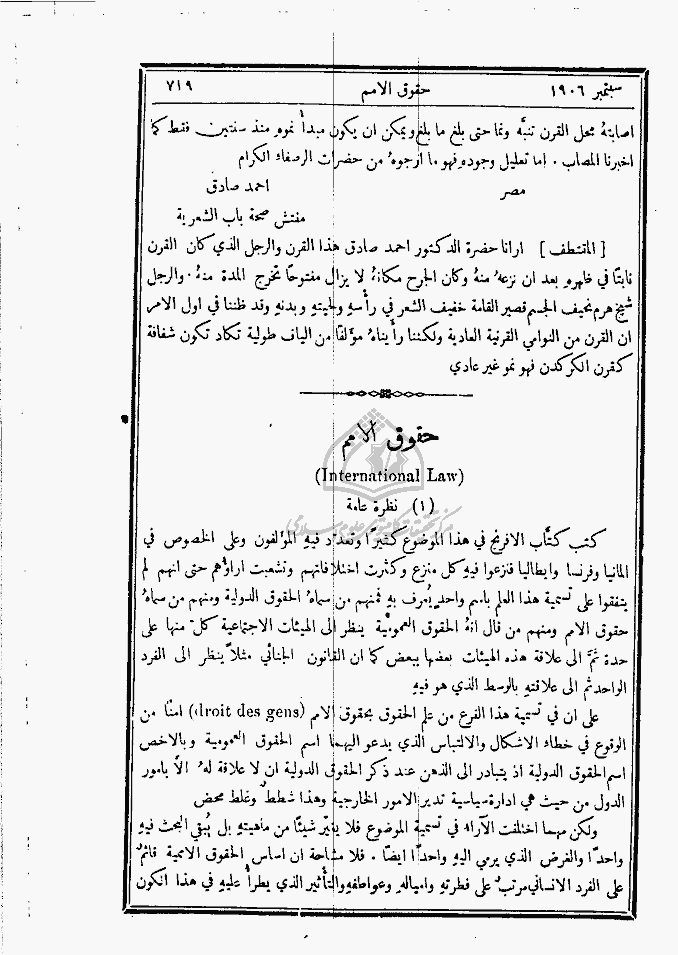 سبتمبر ١٩٠٦ حقوق الامم ٧١٩
اصابتهُ محل القرن تنبَّه ونما حتى بلغ ما بلغ ويمكن ان يكون مبدأ نموهِ منذ سنتين فقط كما
اخبرنا المصاب . اما تعليل وجودهِ فهو ما ارجوهُ من حضرات الرصفاء الكرام
مصر احمد صادق
مفتش صحة باب الشعرية
[ المقتطف ] ارانا حضرة الدكتور احمد صادق هذا القرن والرجل الذي كان القرن
نابتًا في ظهرهِ بعد ان نزعهُ منهُ وكان الجرح مكانهُ لا يزال مفتوحًا تخرج المدة منهُ . والرجل
شيخ هرم نحيف الجسم قصير القامة خفيف الشعر في رأسهِ ولحيتهِ وبدنهِ وقد ظننا في اول الامر
ان القرن من النوامي القرنية العادية ولكننا رأيناهُ مؤلفًا من الياف طولية تكاد تكون شفافة
كقرن الكركدن فهو نمو غير عادي
حقوق الامم
(International Law)
(١) نظرة عامة
كتب كتَّاب الافرنج في هذا الموضوع كثيرًا وتعدَّد فيهِ المؤلفون وعلى الخصوص في
المانيا وفرنسا وايطاليا فنزعوا فيهِ كل منزع وكثرت اختلافاتهم وتشعبت اراؤهم حتى انهم لم
يتفقوا على تسمية هذا العلم باسم واحد يُعرف بهِ فمنهم من سماهُ الحقوق الدولية ومنهم من سماهُ
حقوق الامم ومنهم من قال انهُ الحقوق العموميَّة ينظر الى الهيئات الاجتماعية كلٌّ منها على
حدة ثمَّ الى علاقة هذه الهيئات بعضها ببعض كما ان القانون الجنائي مثلاً ينظر الى الفرد
الواحد ثم الى علاقتهِ بالوسط الذي هو فيهِ
على ان في تسمية هذا الفرع من علم الحقوق بحقوق الامم (droit des gens) امنًا من
الوقوع في خطاء الاشكال والالتباس الذي يدعو اليهما اسم الحقوق العمومية وبالاخص
اسم الحقوق الدولية اذ يتبادر الى الذهن عند ذكر الحقوق الدولية ان لا علاقة لهُ الاَّ بامور
الدول من حيث هي ادارة سياسية تدير الامور الخارجية وهذا شططٌ وغلط محض
ولكن مهما اختلفت الآراء في تسمية الموضوع فلا يغيّر شيئًا من ماهيتهِ بل يُبقي البحث فيهِ
واحدًا والغرض الذي يرمي اليهِ واحدًا ايضًا . فلا مشاحة ان اساس الحقوق الاممية قائمٌ
على الفرد الانساني مرتبٌ على فطرتهِ وامياله وعواطفهِ والتأثير الذي يطرأُ عليهِ في هذا الكون